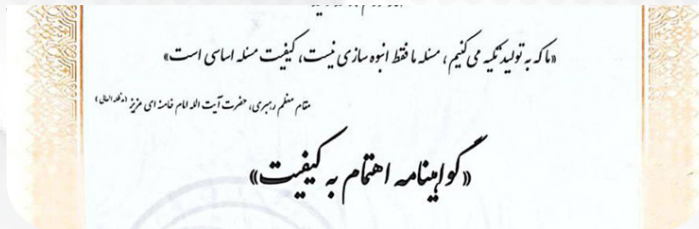 «ما که به تولید تکیه می کنیم، مسئله ما فقط انبوه سازی نیست، کیفیت مسئله اساسی است»
مقام معظم رهبری، حضرت آیت الله امام خامنه ای عزیز (مدظله العالی)
«گواهینامه اهتمام به کیفیت»